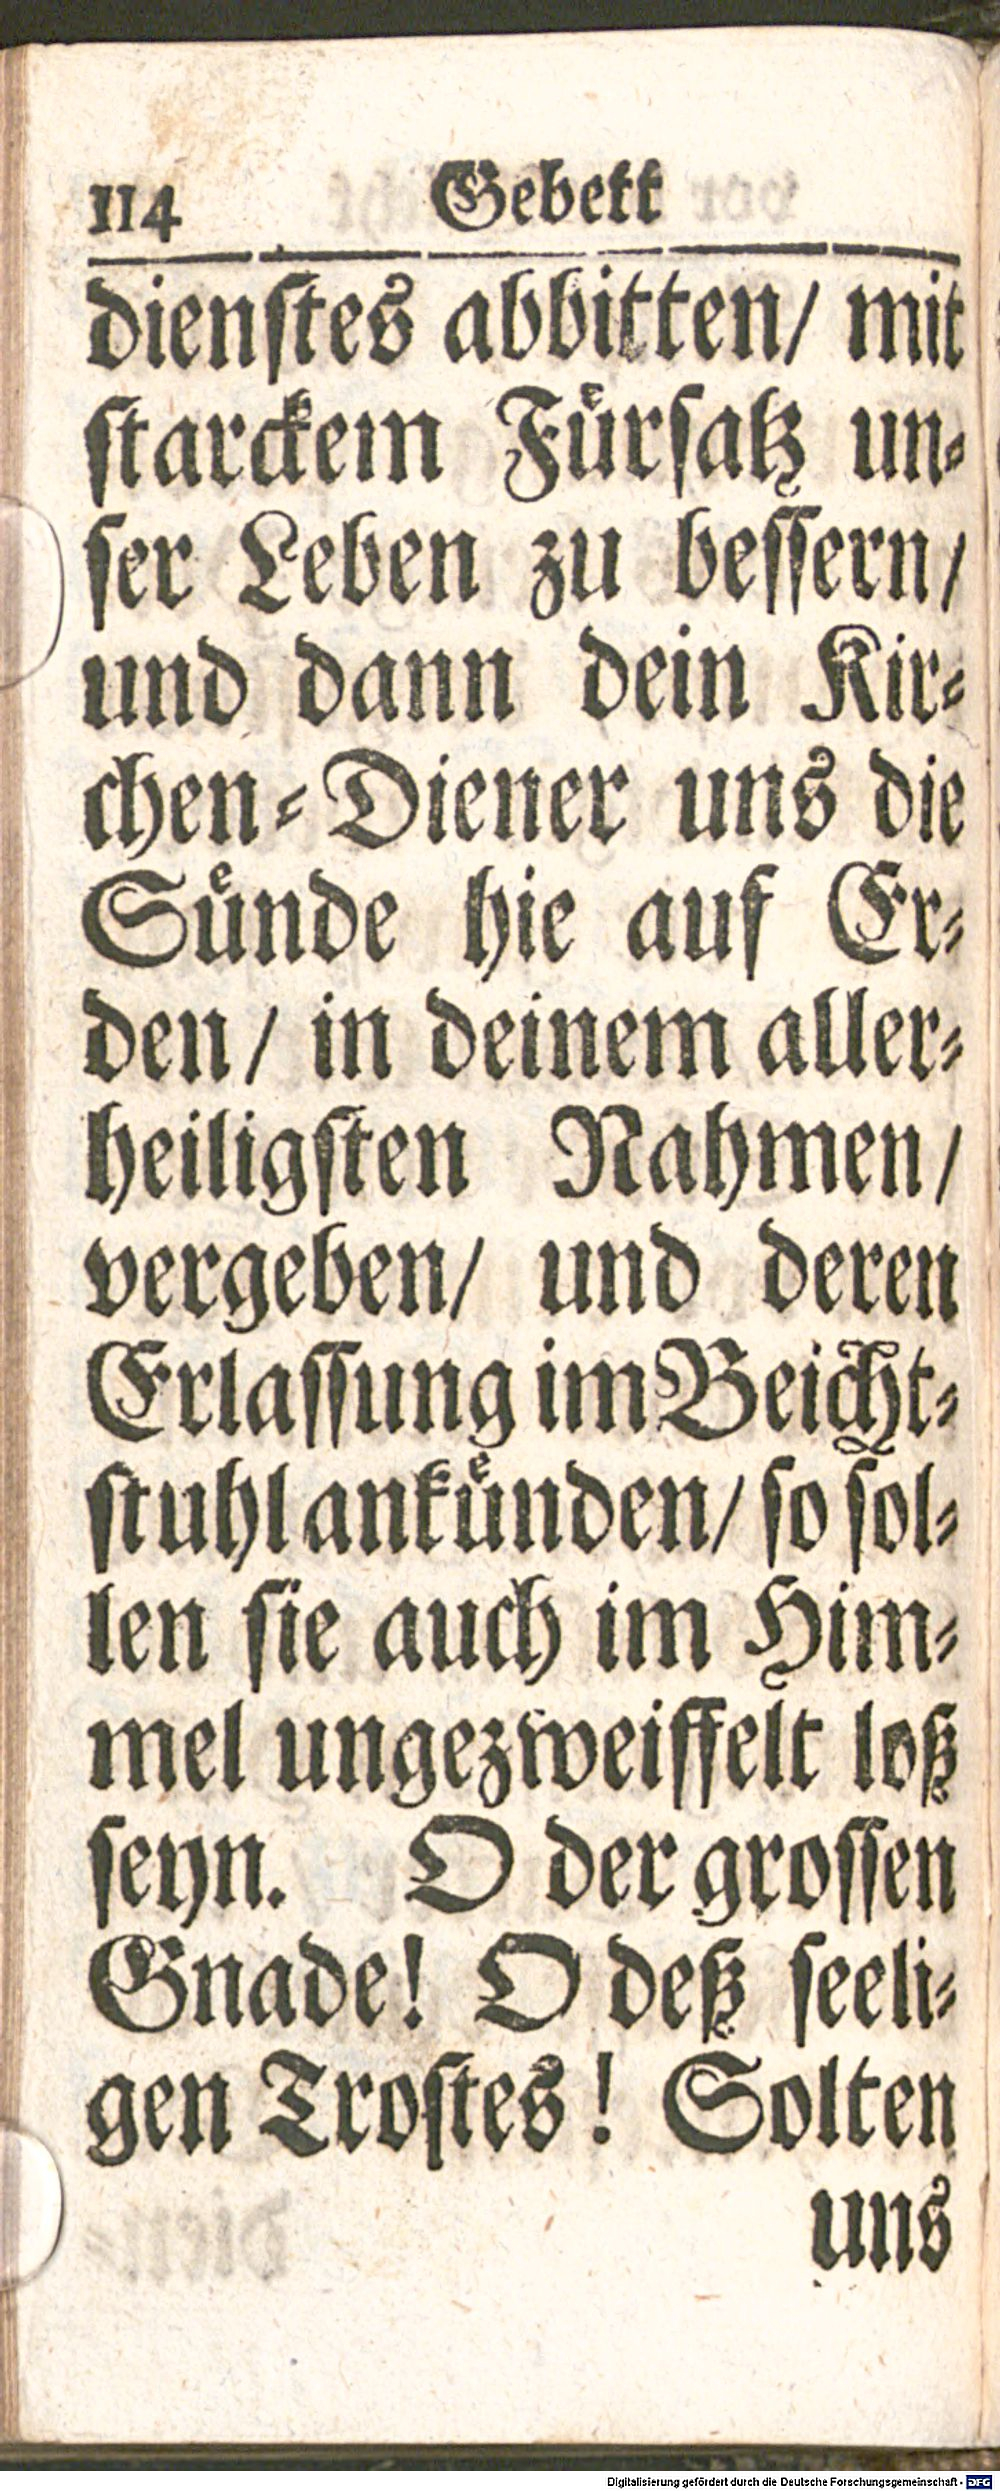 114 Gebett
dienſtes abbitten/ mit
ſtarckem Fuͤrſatz un⸗
ſer Leben zu beſſern/
und dann dein Kir⸗
chen⸗Diener uns die
Suͤnde hie auf Er⸗
den/ in deinem aller⸗
heiligſten Nahmen/
vergeben/ und deren
Erlaſſung im Beicht⸗
ſtuhl ankuͤnden/ ſo ſol⸗
len ſie auch im Him⸗
mel ungezweiffelt loß
ſeyn. O der groſſen
Gnade! O deß ſeeli⸗
gen Troſtes! Solten
uns
Digitalisierung gefördert durch die Deutsche Forschungsgemeinschaft - DFG